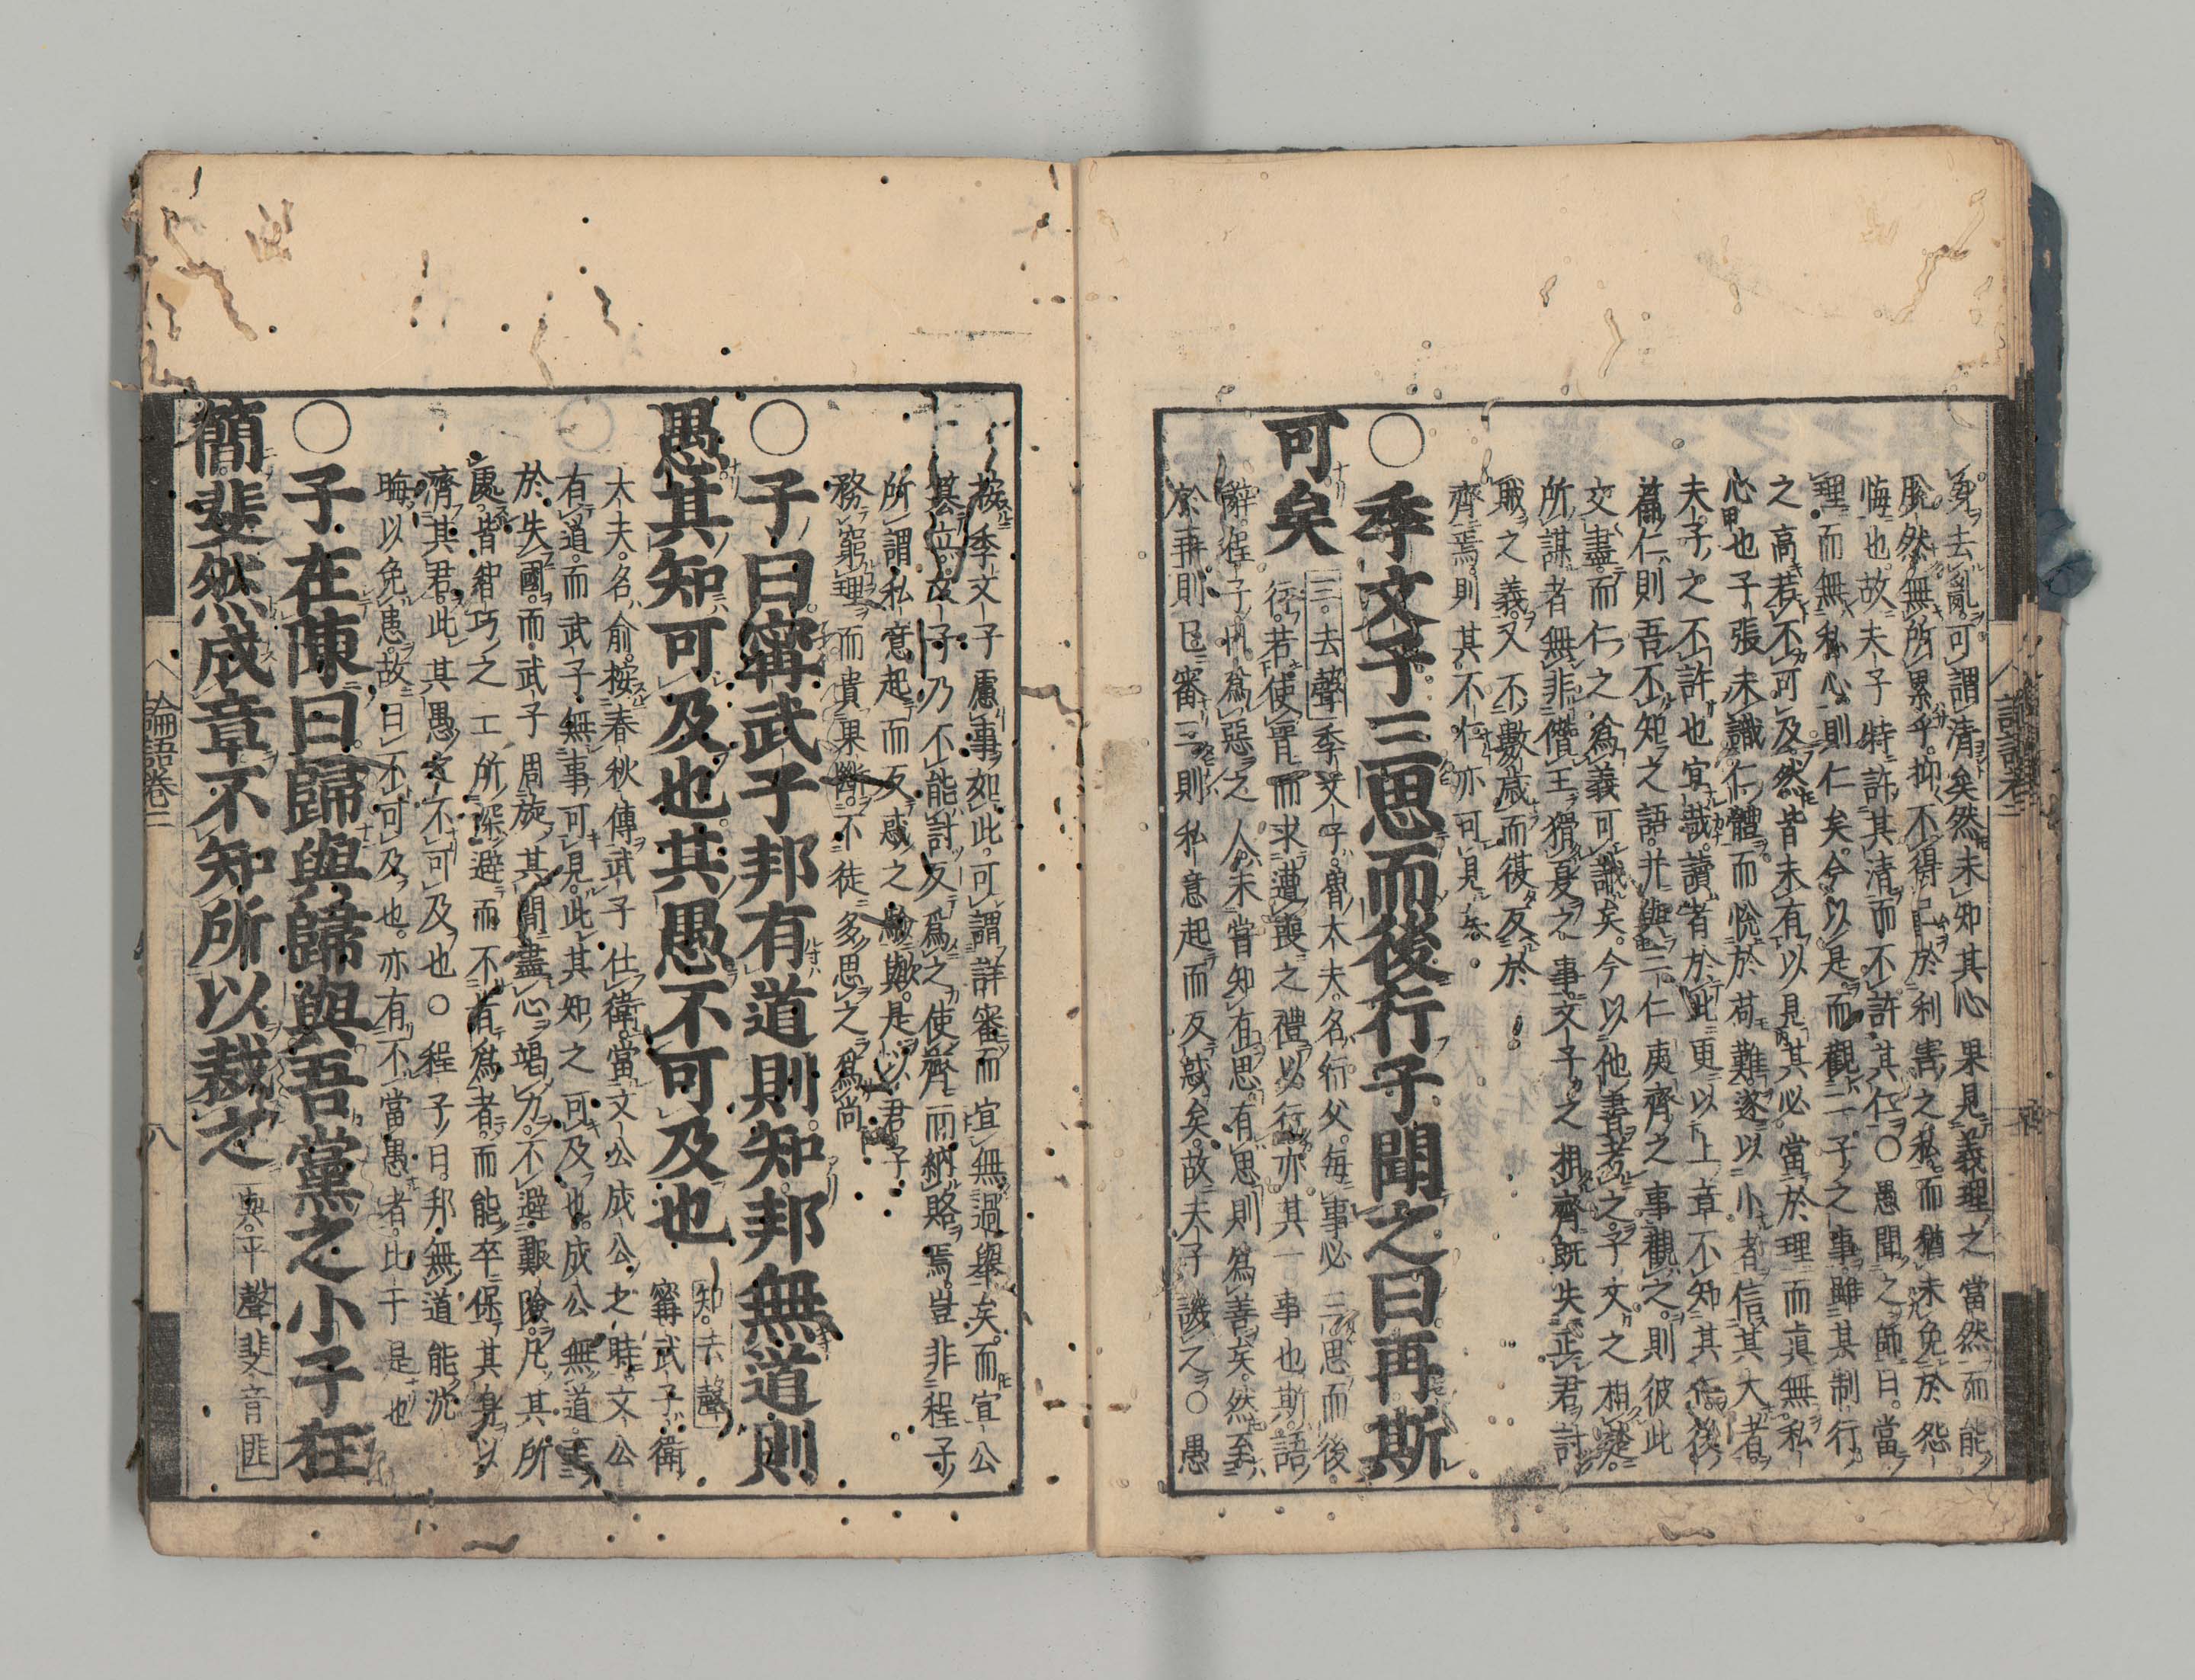 身去亂可謂清矣然未知其心果見義理之當然而能
脫然無所累乎抑不得已於利害之私而猶未免於怨
悔也故夫子特許其清而不許其仁○愚聞之師曰當
理而無私心則仁矣今以是而觀二子之事雖其制行
之高若不可及然皆未有以見其必當於理而眞無私
心也子張未識仁體而悅於苟難遂以小者信其大者
夫子之不許也宜哉讀者於此更以上章不知其仁後
篇仁則吾不知之語幷與三仁夷齊之事觀之則彼此
交盡而仁之爲義可識矣今以他書考之子文之相楚
所謀者無非僭王猾夏之事文子之相齊既失正君討
賊之義又不數歲而復反於
齊焉則其不仁亦可見矣
○季文子三思而後行子聞之曰再斯
可矣 三去聲季文子魯大夫名行父每事必三思而後
行若使晉而求遭喪之禮以行亦其一事也斯語
辭程子曰爲惡之人未嘗知有思有思則爲善矣然至
於事則已審三則私意起而反惑矣故夫子譏之○愚
按季文子慮事如此可謂詳審而宜無過舉矣而宣公
簒立文子乃不能討反爲之使齊而納賂焉豈非程子
所謂私意起而反惑之驗歟是以君子
務窮理而貴果斷不徒多思之爲尚
○子曰甯武子邦有道則知邦無道則
愚其知可及也其愚不可及也 知去聲
甯武子衛
大夫名俞按春秋傳武子仕衛當文公成公之時文公
有道而武子無事可見此其知之可及也成公無道至
於失國而武子周旋其間盡心竭力不避艱險凡其所
處皆智巧之士所深避而不肯爲者而能卒保其身以
濟其君此其愚之不可及也○程子曰邦無道能沈
晦以免患故曰不可及也亦有不當愚者比干是也
○子在陳曰歸與歸與吾黨之小子狂
簡斐然成章不知所以裁之 與平聲斐音匪
論語卷三
八